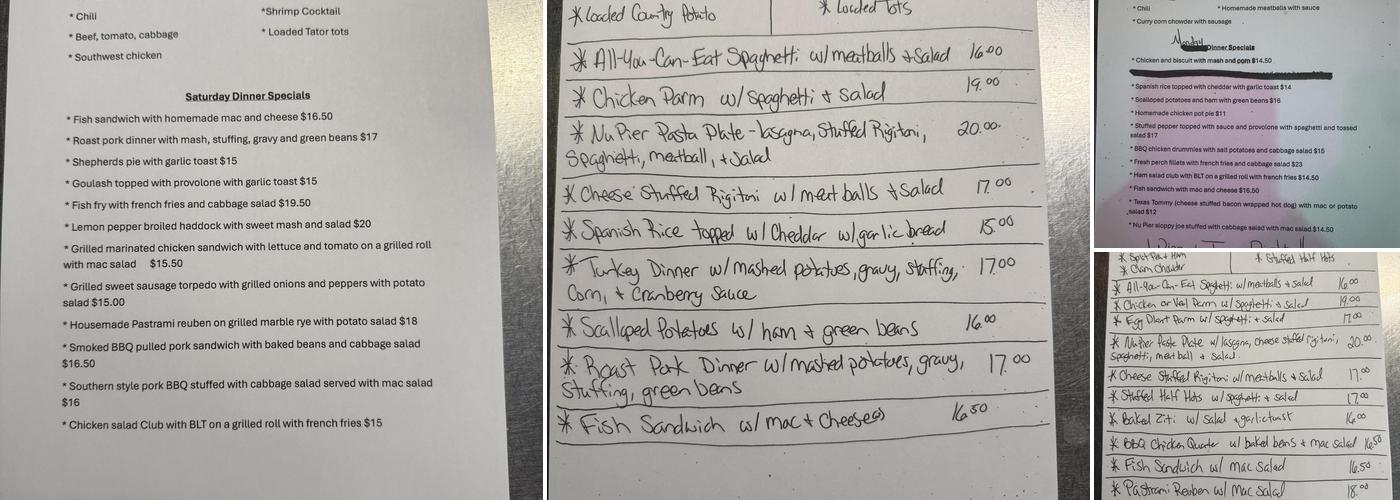 * Chili
*Shrimp Cocktail
* Beef, tomato, cabbage
* Loaded Tator tots
* Southwest chicken
Saturday Dinner Specials
* Fish sandwich with homemade mac and cheese $16.50
* Roast pork dinner with mash, stuffing, gravy and green beans $17
* Shepherds pie with garlic toast $15
* Goulash topped with provolone with garlic toast $15
* Fish fry with french fries and cabbage salad $19.50
* Lemon pepper broiled haddock with sweet mash and salad $20
* Grilled marinated chicken sandwich with lettuce and tomato on a grilled roll
with mac salad $15.50
* Grilled sweet sausage torpedo with grilled onions and peppers with potato
salad $15.00
* Housemade Pastrami reuben on grilled marble rye with potato salad $18
* Smoked BBQ pulled pork sandwich with baked beans and cabbage salad
$16.50
* Southern style pork BBQ stuffed with cabbage salad served with mac salad
$16
* Chicken salad Club with BLT on a grilled roll with french fries $15
* Loaded Country Potato
* Loaded Tots
* All-You-Can-Eat Spaghetti w/meatballs + Salad 16.00
* Chicken Parm w/ Spaghetti + Salad 19.00
* Nu Pier Pasta Plate - lasagna, Stuffed Rigitoni, 20.00
Spaghetti, meatball, + Salad
* Cheese Stuffed Rigitoni w/ meatballs + Salad 17.00
* Spanish Rice topped w/ Cheddar w/garlic bread 15.00
* Turkey Dinner w/mashed potatoes, gravy, stuffing, 17.00
Corn, + Cranberry Sauce
* Scalloped Potatoes w/ ham + green beans 16.00
* Roast Pork Dinner w/mashed potatoes, gravy, 17.00
Stuffing, green beans
* Fish Sandwich w/ mac + Cheese 16.50
* Chili
* Homemade meatballs with sauce
* Curry corn chowder with sausage
Monday Dinner Specials
* Chicken and biscuit with mash and corn $14.50
* Spanish rice topped with cheddar with garlic toast $14
* Scalloped potatoes and ham with green beans $16
* Homemade chicken pot pie $11
* Stuffed pepper topped with sauce and provolone with spaghetti and tossed
salad $17
* BBQ chicken drummies with salt potatoes and cabbage salad $15
* Fresh perch fillets with french fries and cabbage salad $23
* Ham salad club with BLT on a grilled roll with french fries $14.50
* Fish sandwich with mac and cheese $16.50
* Texas Tommy (cheese stuffed bacon wrapped hot dog) with mac or potato
salad $12
* Nu Pier sloppy joe stuffed with cabbage salad with mac salad $14.50
* Split Pea + Ham
* Stuffed Half Hots
* Clam Chowder
* All-You-Can-Eat Spghetti w/ meatballs + salad 16.00
* Chicken or Veal Parm w/ Spaghetti + Salad 19.00
* Egg Plant Parm w/ spaghetti + salad 17.00
* Nu Pier Pasta Plate w/ lasagna, cheese stuffed rigitoni, 20.00
Spaghetti, meatball + Salad
* Cheese Stuffed Rigitoni w/meatballs + Salad 17.00
* Stuffed Half Hots w/ spaghetti + salad 17.00
* Baked Ziti w/ Salad + garlic toast 16.00
* BBQ Chicken Quarter w/ baked beans + mac Salad 16.50
* Fish Sandwich w/ Mac Salad 16.50
* Pastrami Reuben w/ Mac Salad 18.00